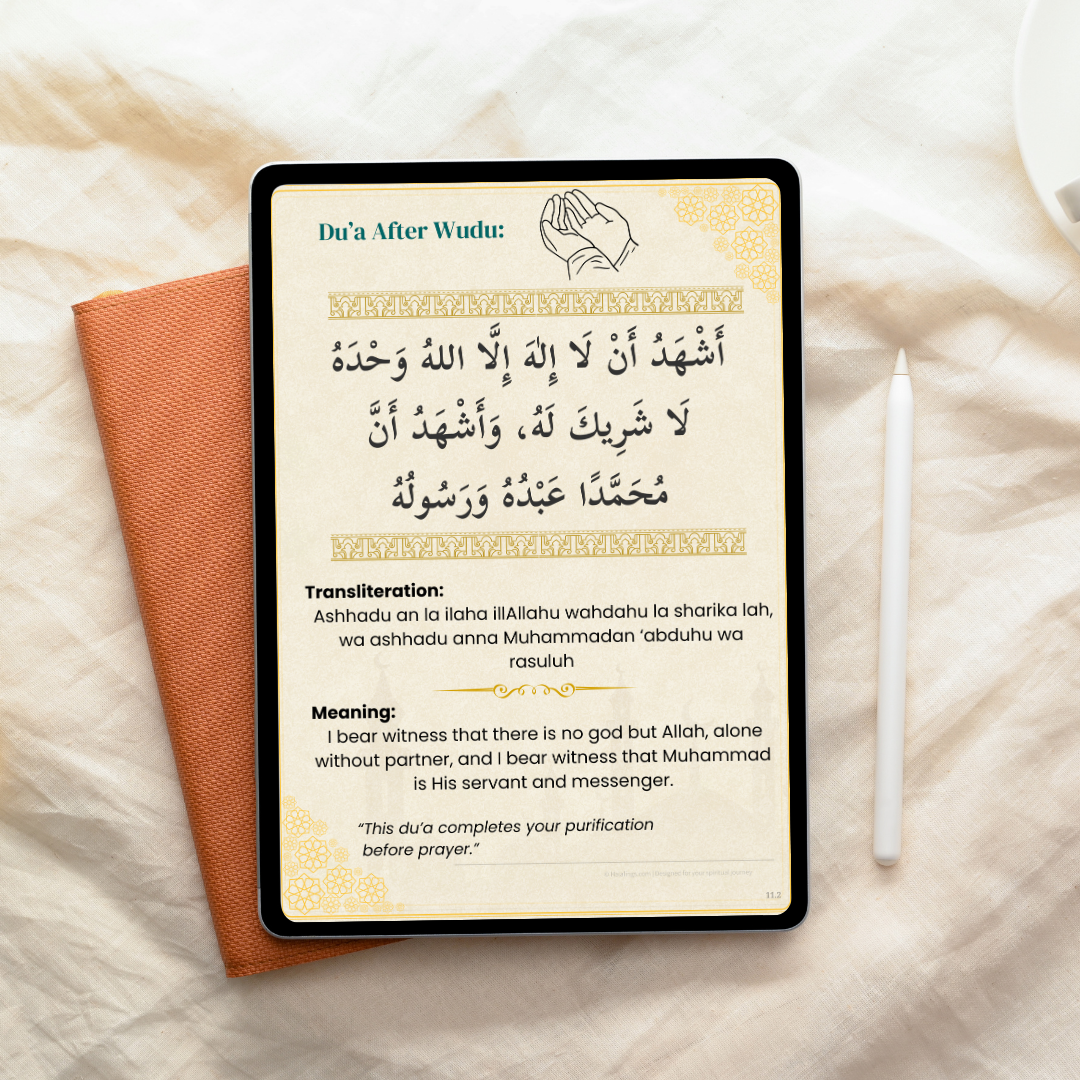 Du’a After Wudu:
أَشْهَدُ أَنْ لَا إِلٰهَ إِلَّا اللهُ وَحْدَهُ
لَا شَرِيكَ لَهُ، وَأَشْهَدُ أَنَّ
مُحَمَّدًا عَبْدُهُ وَرَسُولُهُ
Transliteration:
Ashhadu an la ilaha illAllahu wahdahu la sharika lah,
wa ashhadu anna Muhammadan ‘abduhu wa
rasuluh
Meaning:
I bear witness that there is no god but Allah, alone
without partner, and I bear witness that Muhammad
is His servant and messenger.
“This du’a completes your purification
before prayer.”
for your spiritual journey
11.2